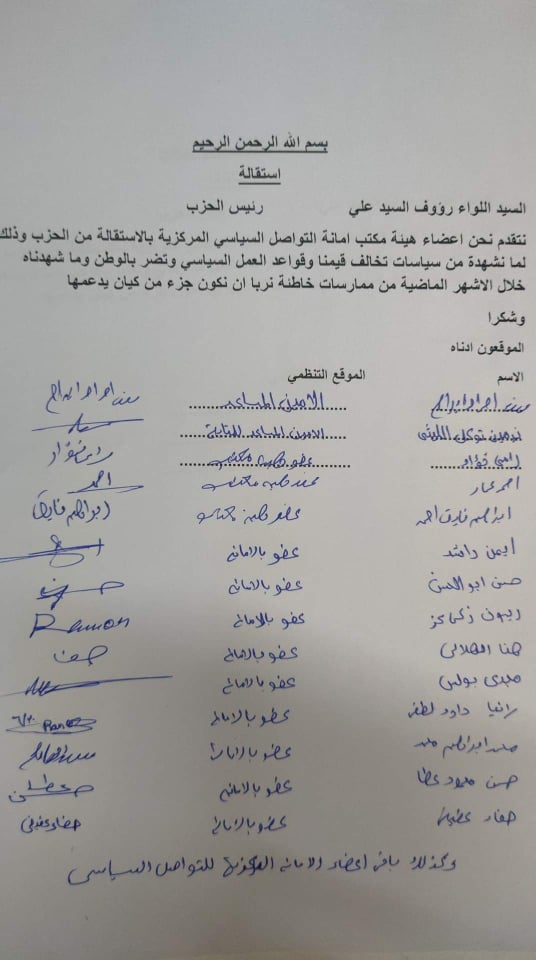 بسم الله الرحمن الرحيم
استقالة
السيد اللواء رؤوف السيد علي رئيس الحزب
نتقدم نحن اعضاء هيئة مكتب امانة التواصل السياسي المركزية بالاستقالة من الحزب وذلك
لما نشهدة من سياسات تخالف قيمنا وقواعد العمل السياسي وتضر بالوطن وما شهدناه
خلال الاشهر الماضية من ممارسات خاطئة نربا ان نكون جزء من كيان يدعمها
وشكرا
الموقعون ادناه
الاسم الموقع التنظمي
الامين المساعد
الامين المساعد
رامى فؤاد عضو هيئة مكتب
احمد عمار عضو هيئة مكتب احمد
ابراهيم فاروق احمد عضو هيئة مكتب
ايمن راشد عضو بالامانة
حسن ابو الحسن عضو بالامانة
ريمون زكى عضو بالامانة Ramon
عضو بالامانة
مجدى بولس عضو بالامانة
رانيا داود عضو بالامانة
عضو بالامانة
حسن محمود عطا عضو بالامانة
عضو بالامانة
وكذلك باقى اعضاء الامانة المركزية للتواصل السياسى